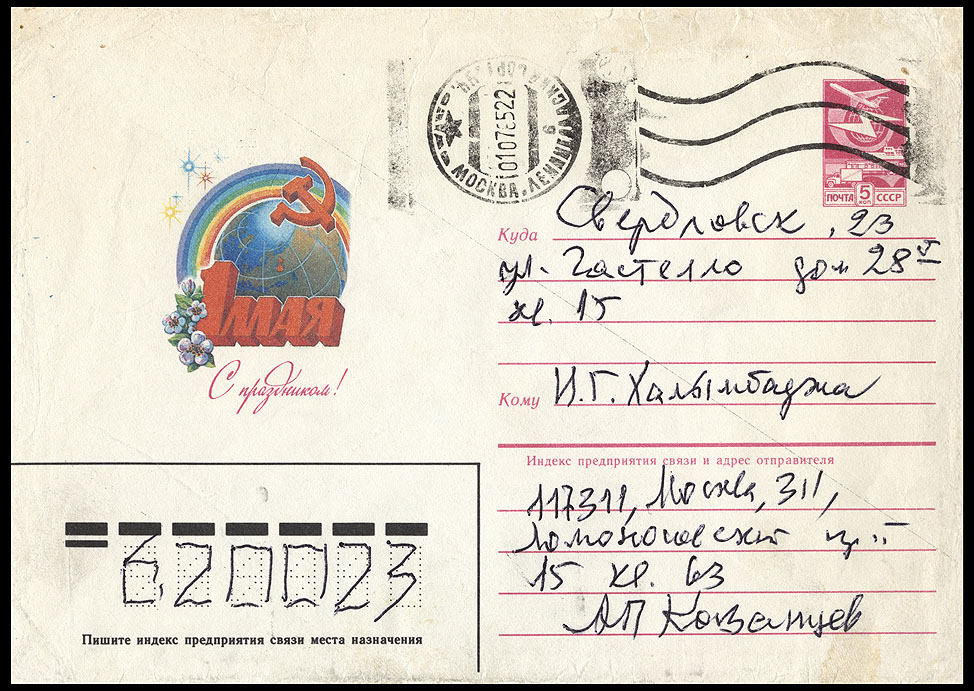 МОСКВА
010785 22
ПОЧТА 5 КОП СССР
1 МАЯ
С праздником!
Куда Свердловск, 23
ул. Гастелло дом 28
кв. 15
Кому И.Г. Халымбаджа
Индекс предприятия связи и адрес отправителя
117311, Москва, 311,
Ломоносовский пр.
15 кв. 63
АП Казанцев
620023
Пишите индекс предприятия связи места назначения